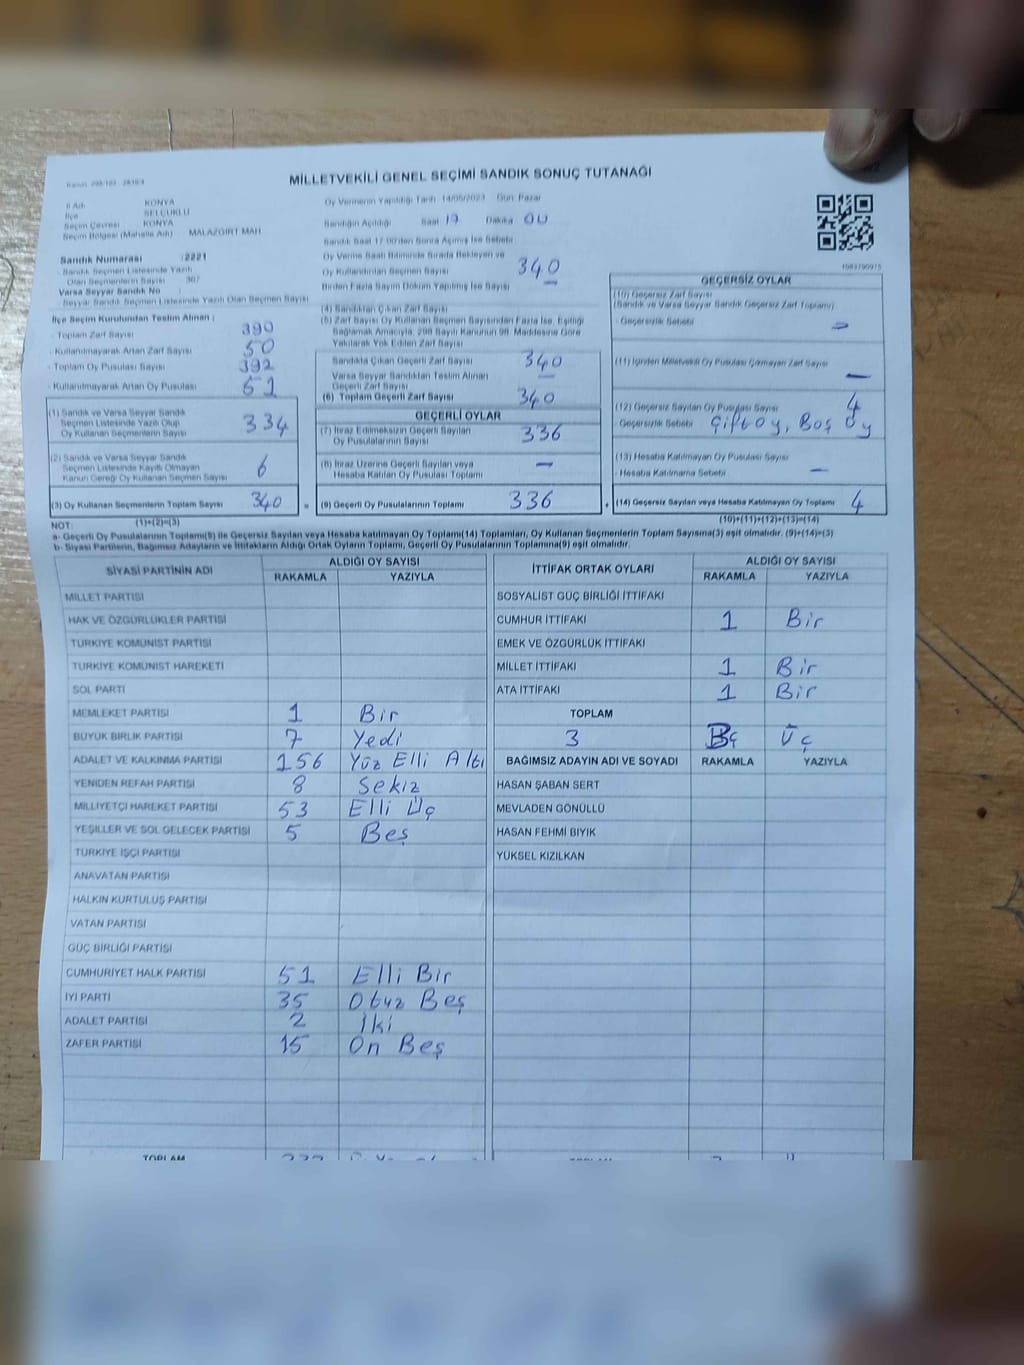 MİLLETVEKİLİ GENEL SEÇİMİ SANDIK SONUÇ TUTANAĞI
İl Adı KONYA
İlçe SELÇUKLU
Seçim Çevresi KONYA
Seçim Bölgesi (Mahalle Adı) MALAZGİRT MAH.
Sandık Numarası :2221
Sandık Seçmen Listesinde Yazılı
Olan Seçmenlerin Sayısı 367
Varsa Seyyar Sandık No :
Seyyar Sandık Seçmen Listesinde Yazılı Olan Seçmen Sayısı
Oy Vermenin Yapıldığı Tarih 14/05/2023 Gün: Pazar
Sandığın Açıldığı Saat 17 Dakika 00
Sandık Saat 17:00'den Sonra Açılmış İse Sebebi :
Oy Verme Saati Bitiminde Sırada Bekleyen ve
Oy Kullandırılan Seçmen Sayısı 340
Birden Fazla Sayım Döküm Yapılmış İse Sayısı —
1083790975
İlçe Seçim Kurulundan Teslim Alınan :
- Toplam Zarf Sayısı 390
- Kullanılmayarak Artan Zarf Sayısı 50
- Toplam Oy Pusulası Sayısı 392
- Kullanılmayarak Artan Oy Pusulası 51
(1) Sandık ve Varsa Seyyar Sandık
Seçmen Listesinde Yazılı Olup
Oy Kullanan Seçmenlerin Sayısı 334
(2) Sandık ve Varsa Seyyar Sandık
Seçmen Listesinde Kayıtlı Olmayan
Kanun Gereği Oy Kullanan Seçmen Sayısı 6
(3) Oy Kullanan Seçmenlerin Toplam Sayısı 340
(4) Sandıktan Çıkan Zarf Sayısı
(5) Zarf Sayısı Oy Kullanan Seçmen Sayısından Fazla İse, Eşitliği
Sağlamak Amacıyla, 298 Sayılı Kanunun 98. Maddesine Göre
Yakılarak Yok Edilen Zarf Sayısı
Sandıkta Çıkan Geçerli Zarf Sayısı 340
Varsa Seyyar Sandıktan Teslim Alınan
Geçerli Zarf Sayısı —
(6) Toplam Geçerli Zarf Sayısı 340
GEÇERLİ OYLAR
(7) İtiraz Edilmeksizin Geçerli Sayılan
Oy Pusulalarının Sayısı 336
(8) İtiraz Üzerine Geçerli Sayılan veya
Hesaba Katılan Oy Pusulası Toplamı —
(9) Geçerli Oy Pusulalarının Toplamı 336
GEÇERSİZ OYLAR
(10) Geçersiz Zarf Sayısı
(Sandık ve Varsa Seyyar Sandık Geçersiz Zarf Toplamı)
- Geçersizlik Sebebi —
(11) İçinden Milletvekili Oy Pusulası Çıkmayan Zarf Sayısı
—
(12) Geçersiz Sayılan Oy Pusulası Sayısı 4
- Geçersizlik Sebebi Çift Oy, Boş Oy
(13) Hesaba Katılmayan Oy Pusulası Sayısı
- Hesaba Katılmama Sebebi —
(14) Geçersiz Sayılan veya Hesaba Katılmayan Oy Toplamı 4
NOT: (1)+(2)=(3) (10)+(11)+(12)+(13)=(14)
a- Geçerli Oy Pusulalarının Toplamı(9) ile Geçersiz Sayılan veya Hesaba Katılmayan Oy Toplamı(14) Toplamları, Oy Kullanan Seçmenlerin Toplam Sayısına(3) eşit olmalıdır. (9)+(14)=(3)
b- Siyasi Partilerin, Bağımsız Adayların ve İttifakların Aldığı Ortak Oyların Toplamı, Geçerli Oy Pusulalarının Toplamına(9) eşit olmalıdır.
SİYASİ PARTİNİN ADI ALDIĞI OY SAYISI
RAKAMLA YAZIYLA
MİLLET PARTİSİ
HAK VE ÖZGÜRLÜKLER PARTİSİ
TÜRKİYE KOMÜNİST PARTİSİ
TÜRKİYE KOMÜNİST HAREKETİ
SOL PARTİ
MEMLEKET PARTİSİ 1 Bir
BÜYÜK BİRLİK PARTİSİ 7 Yedi
ADALET VE KALKINMA PARTİSİ 156 Yüz Elli Altı
YENİDEN REFAH PARTİSİ 8 Sekiz
MİLLİYETÇİ HAREKET PARTİSİ 53 Elli Üç
YEŞİLLER VE SOL GELECEK PARTİSİ 5 Beş
TÜRKİYE İŞÇİ PARTİSİ
ANAVATAN PARTİSİ
HALKIN KURTULUŞ PARTİSİ
VATAN PARTİSİ
GÜÇ BİRLİĞİ PARTİSİ
CUMHURİYET HALK PARTİSİ 51 Elli Bir
İYİ PARTİ 35 Otuz Beş
ADALET PARTİSİ 2 İki
ZAFER PARTİSİ 15 On Beş
TOPLAM
İTTİFAK ORTAK OYLARI ALDIĞI OY SAYISI
RAKAMLA YAZIYLA
SOSYALİST GÜÇ BİRLİĞİ İTTİFAKI
CUMHUR İTTİFAKI 1 Bir
EMEK VE ÖZGÜRLÜK İTTİFAKI
MİLLET İTTİFAKI 1 Bir
ATA İTTİFAKI 1 Bir
TOPLAM
3 Üç
BAĞIMSIZ ADAYIN ADI VE SOYADI RAKAMLA YAZIYLA
HASAN ŞABAN SERT
MEVLADEN GÖNÜLLÜ
HASAN FEHMİ BIYIK
YÜKSEL KIZILKAN